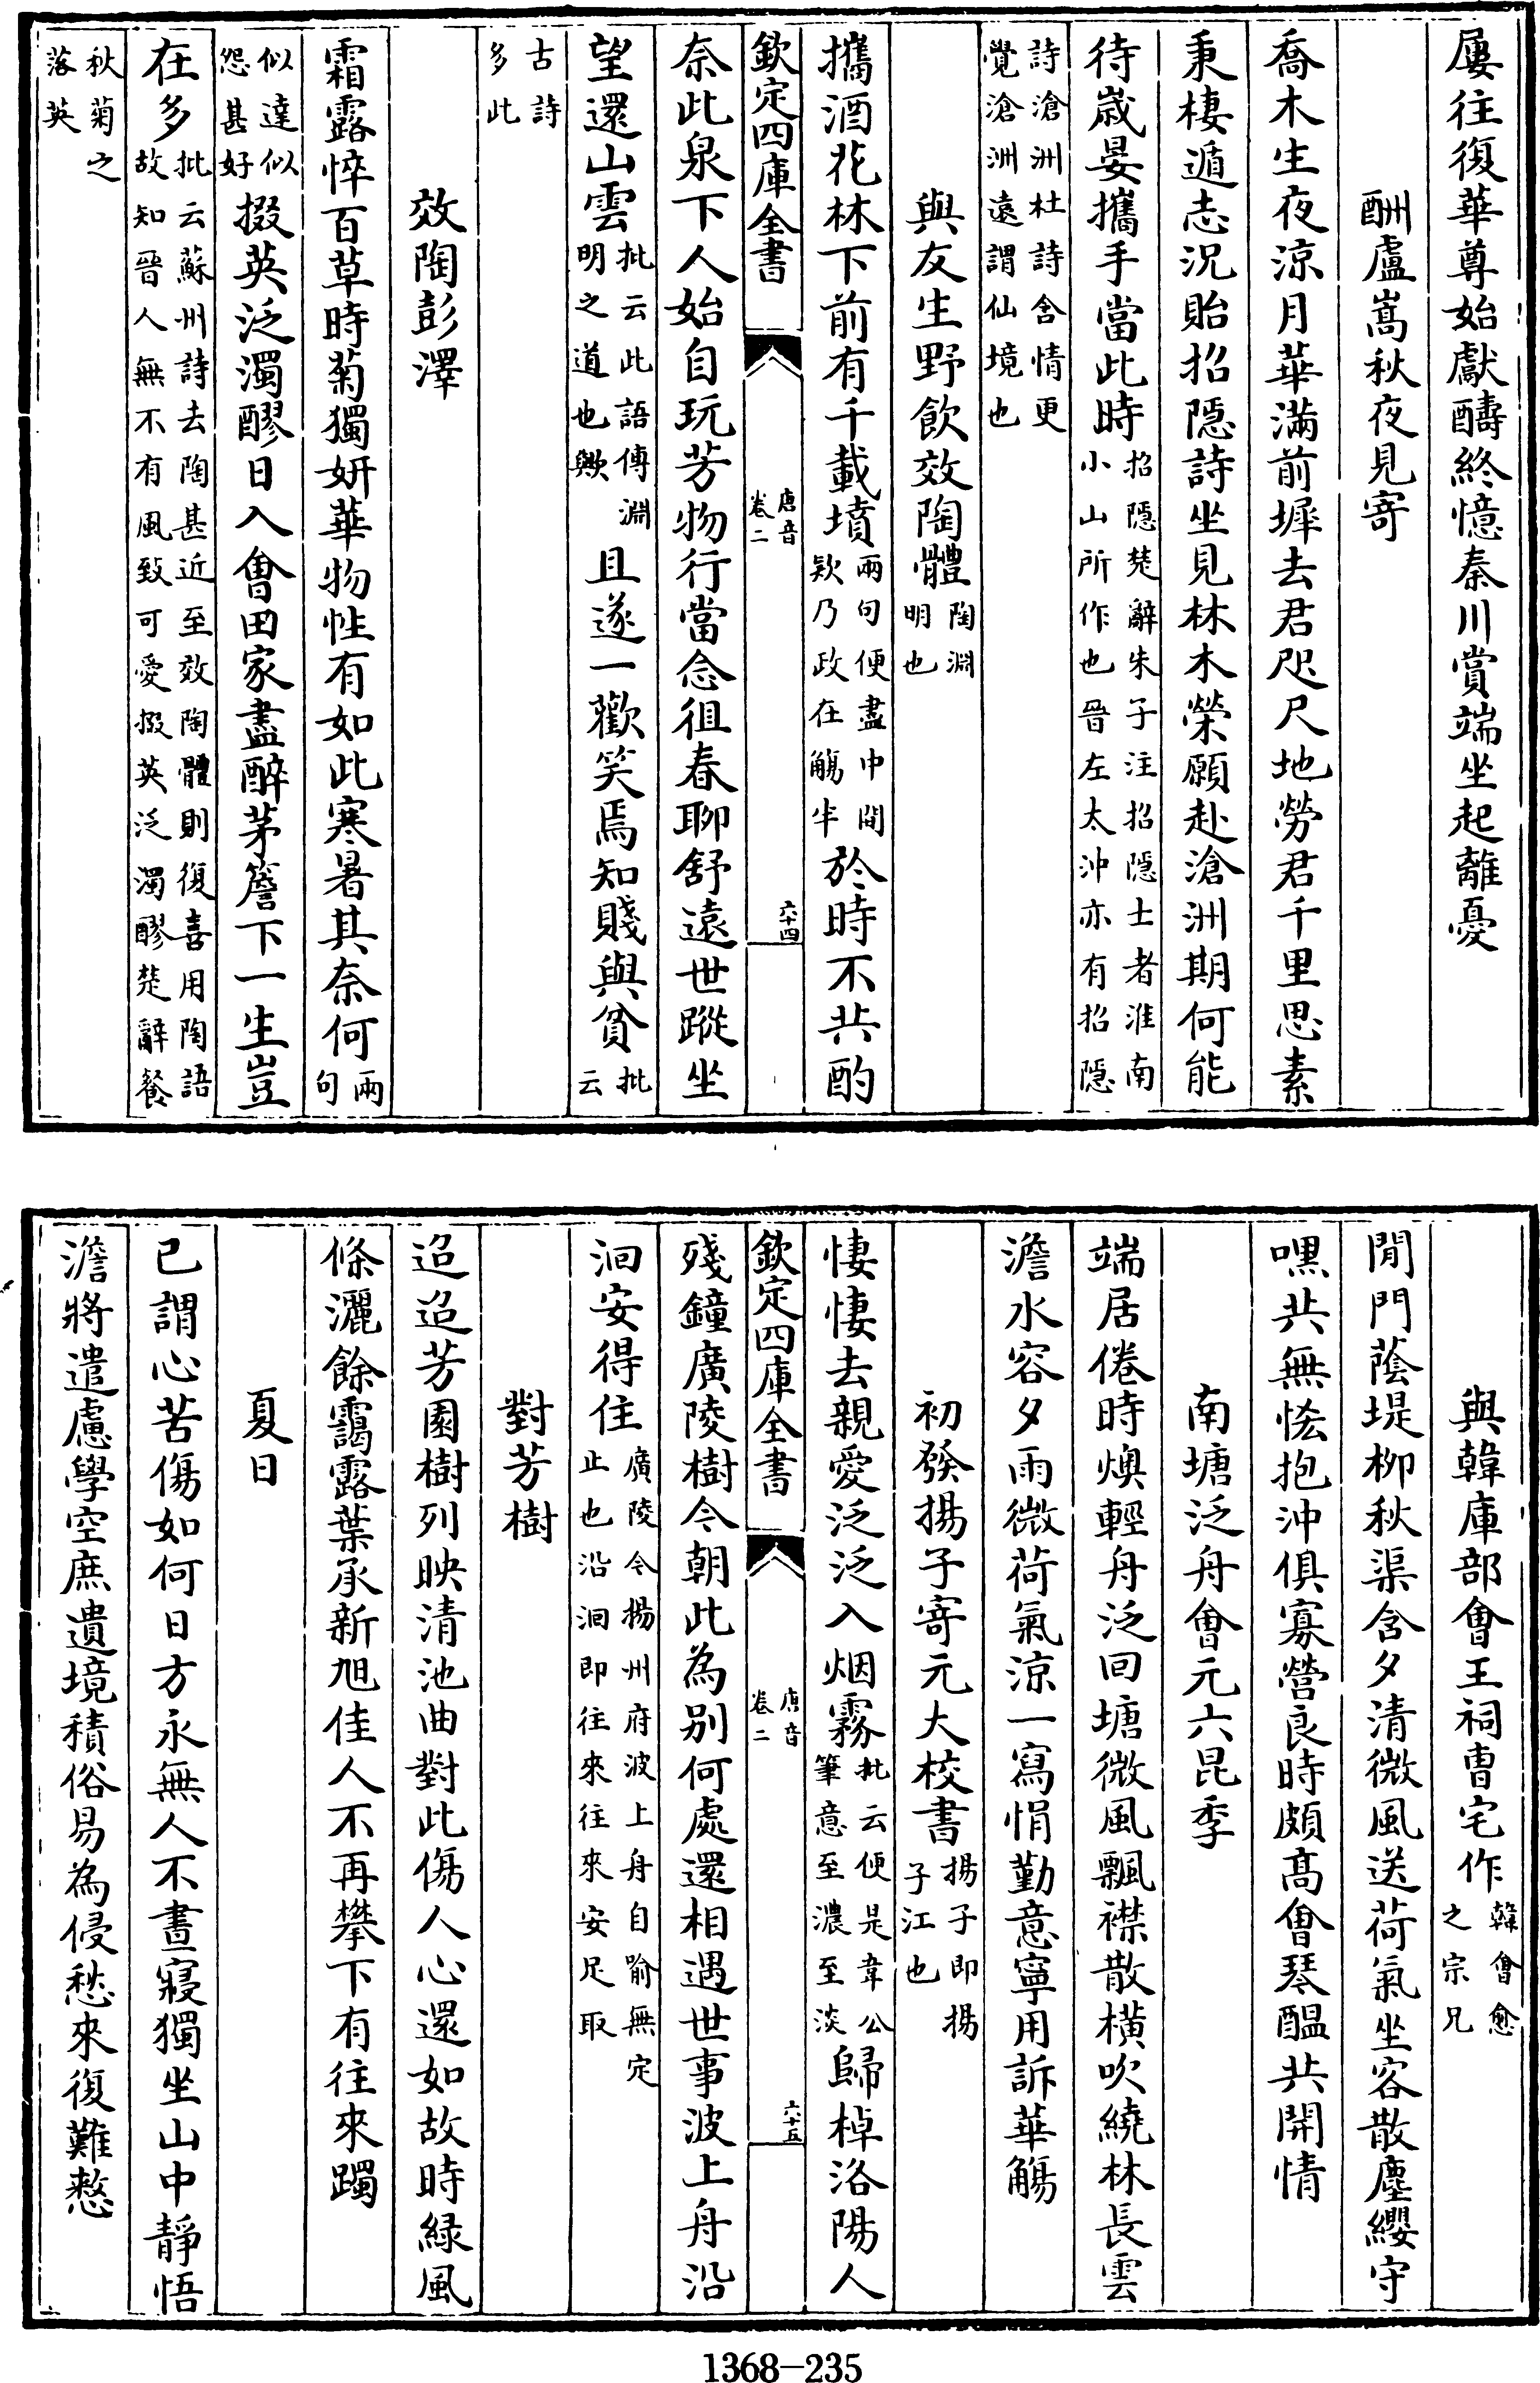 屢往復華尊始獻酬終憶秦川賞端坐起離憂
酬盧嵩秋夜見寄
喬木生夜涼月華滿前墀去君咫尺地勞君千里思素
秉棲遁志況貽招隱詩坐見林木榮願赴滄洲期何能
待歲晏攜手當此時招隱楚辭朱子注招隱士者淮南小山所作也晉左太沖亦有招隱
詩滄洲杜詩含情更覺滄洲遠謂仙境也
與友生野飲效陶體陶淵明也
攜酒花林下前有千載墳兩句便盡中間欵乃政在觴半於時不共酌
欽定四庫全書
唐音
卷二
六十四
奈此泉下人始自玩芳物行當念徂春聊舒遠世蹤坐
望還山雲批云此語傳淵明之道也歟且遂一歡笑焉知賤與貧批云
古詩多此
效陶彭澤
霜露悴百草時菊獨妍華物性有如此寒暑其奈何兩句
似達似怨甚好掇英泛濁醪日入會田家盡醉茅簷下一生豈
在多批云蘇州詩去陶甚近至效陶體則復喜用陶語故知晉人無不有風致可愛掇英泛濁醪楚辭餐
秋菊之落英
與韓庫部會王祠曹宅作韓會愈之宗兄
閒門蔭堤柳秋渠含夕清微風送荷氣坐客散塵纓守
嘿共無恡抱沖俱寡營良時頗高會琴醖共開情
南塘泛舟會元六昆季
端居倦時燠輕舟泛回塘微風飄襟散橫吹繞林長雲
澹水容夕雨微荷氣涼一寫悁勤意寧用訴華觴
初發揚子寄元大校書揚子即揚子江也
悽悽去親愛泛泛入烟霧批云便是韋公筆意至濃至淡歸棹洛陽人
欽定四庫全書
唐音
卷二
六十五
殘鐘廣陵樹今朝此為別何處還相遇世事波上舟沿
洄安得住廣陵今揚州府波上舟自喻無定止也沿洄即往來往來安足取
對芳樹
迢迢芳園樹列映清池曲對此傷人心還如故時綠風
條灑餘靄露葉承新旭佳人不再攀下有往來躅
夏日
已謂心苦傷如何日方永無人不晝寢獨坐山中靜悟
澹將遣慮學空庶遺境積俗易為侵愁來復難整
1368—235